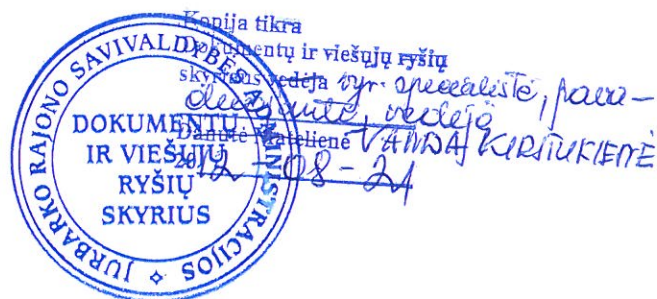 Kopija tikra
Dokumentų ir viešųjų ryšių
skyriaus vedėja vyr. specialistė, pava-
duojanti vedėją
Danutė Matelienė VANDA KIRŠTUKIENĖ
2012-08-21
JURBARKO RAJONO SAVIVALDYBĖS ADMINISTRACIJOS
DOKUMENTŲ
IR VIEŠŲJŲ
RYŠIŲ
SKYRIUS